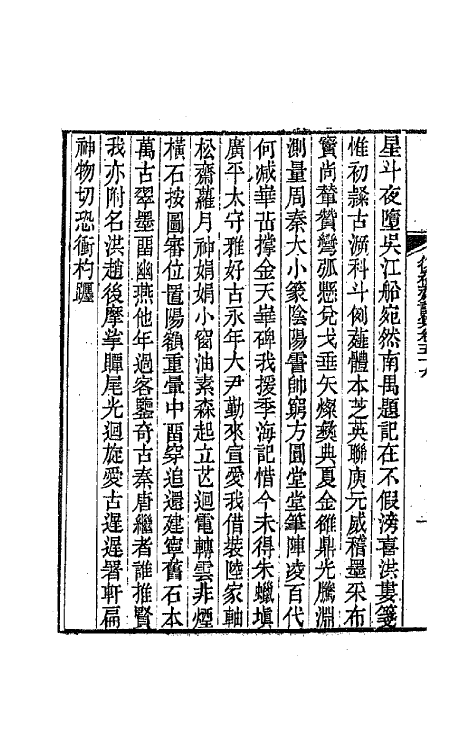 星斗夜墮吳江船宛然南禺題記在不假滂喜洪婁箋
惟初隸古溯科斗倒薤體本芝英聯庾元威稽墨采布
竇尚輦贊彎弧懸兌戈垂矢燦彝典夏金雒鼎光騰淵
測量周秦大小篆陰陽霤帥窮方圓堂堂筆陣凌百代
何減華岳撐金天華碑我援季海記惜今未得朱蠟塡
廣平太守雅好古永年大尹勤來宣愛我借裝陸家軸
松齋蘿月神娟娟小窗油素森起立芒迴電轉雲非煙
橫石按圖審位置陽額重暈中畱穿追還建寧舊石本
萬古翠墨畱幽燕他年過客鑒奇古秦唐繼者誰推賢
我亦附名洪趙後摩挲贉尾光迴旋愛古遲遲署軒扁
神物切恐衝杓躔